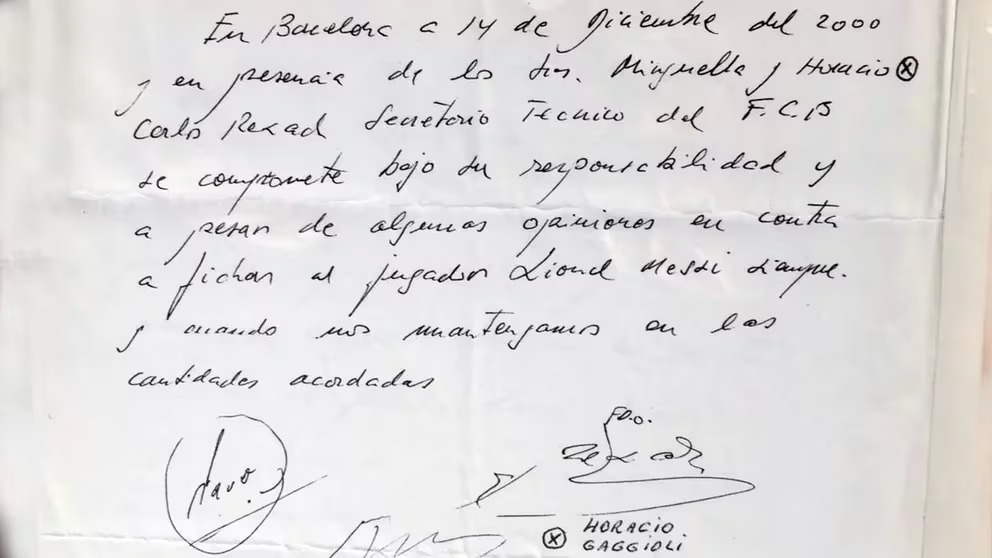 En Barcelona a 14 de Diciembre del 2000
y en presencia de los Srs. Minguella y Horacio ⊗
Carlos Rexach Secretario Tecnico del F.C.B
se compromete bajo su responsabilidad y
a pesar de algunas opiniones en contra
a fichar al jugador Lionel Messi siempre.
y cuando nos mantengamos en las
cantidades acordadas
Fdo.
Rexach
⊗ HORACIO
GAGGIOLI